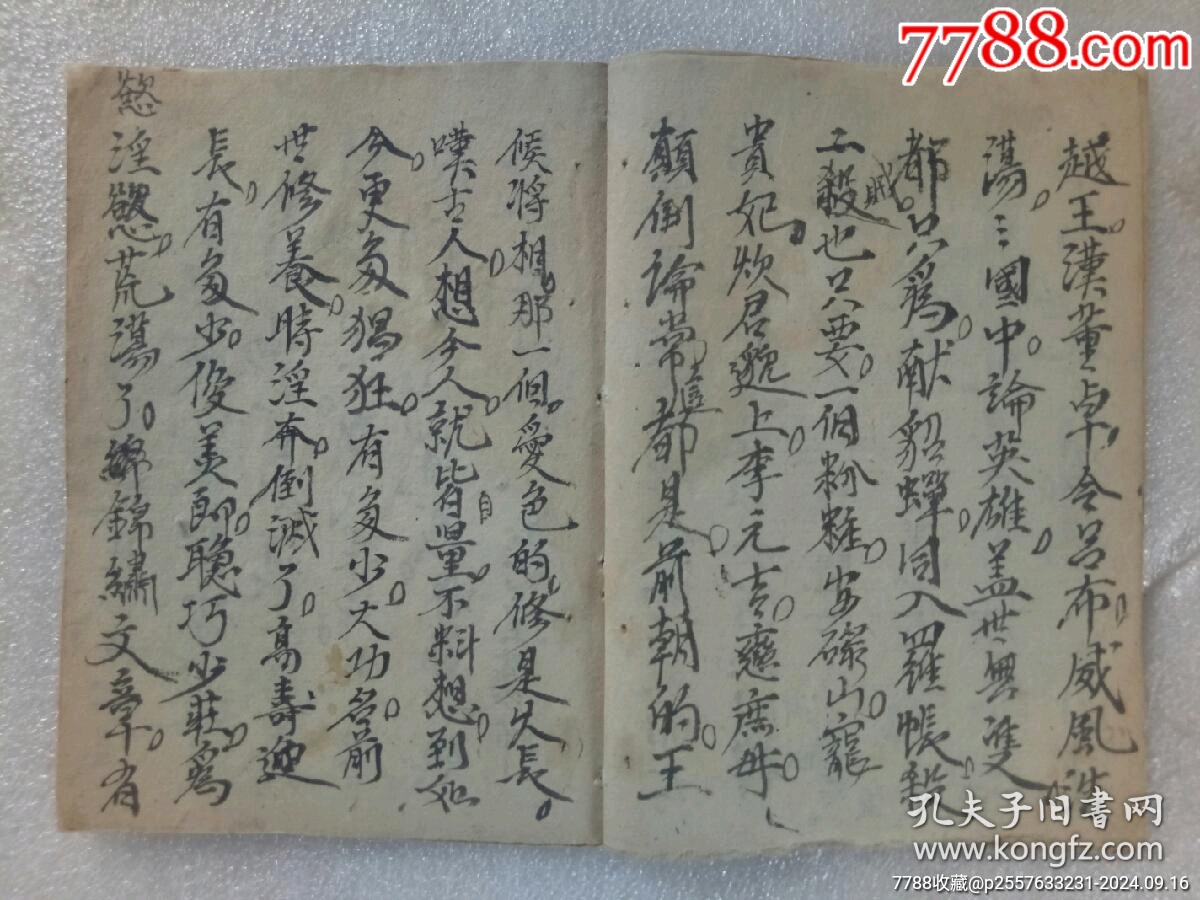 7788.com
越王。漢董卓。令呂布。威風浩
蕩。三國中。論英雄。盖世無雙
都只爲。献貂蟬。同入羅帳。
也只要。一個粉粧。安碌山。寵
貴妃。欺君貌上。李元吉。戀庶母。
顛倒論常。都是。前朝的。王
侯將相。那一個。愛色的。修是久長。
嘆古人。想今人。就皆自量。不料想。到如
今。更多猖狂。有多少。大功名。前
世修養。時淫奔。倒減了。高壽
長。有多少。俊美郎。聰巧少莊。爲
淫慾。荒蕩了。錦繡文章。有
慾
孔夫子旧書网
www.kongfz.com
7788收藏@p2557633231-2024.09.16